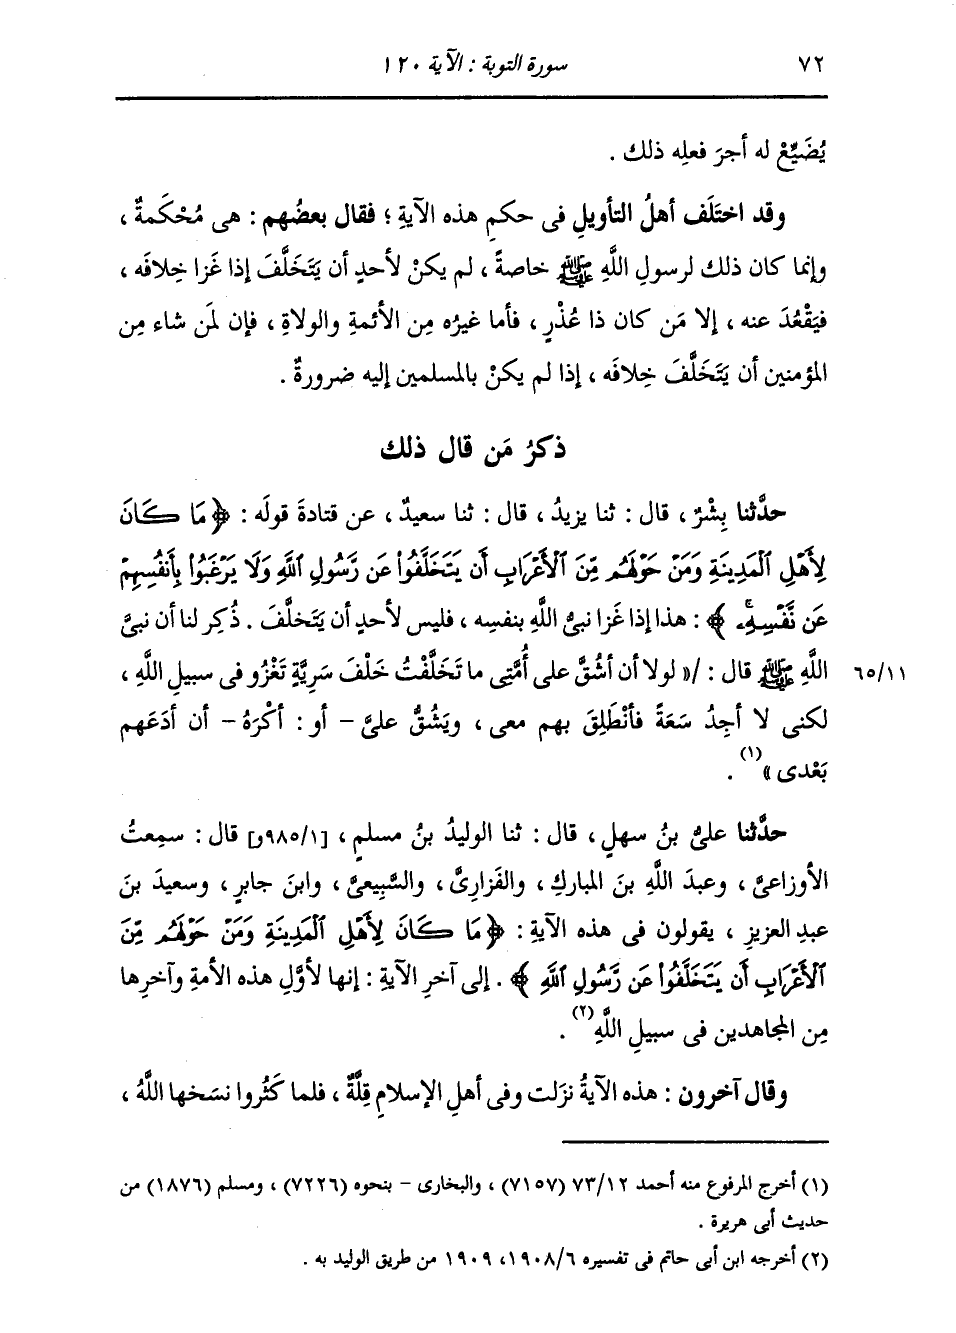 ٧٢ سورة التوبة : الآية ١٢٠
يُضَيِّعْ له أجرَ فعلِه ذلك .
وقد اختلَف أهلُ التأويلِ فى حكمِ هذه الآيةِ ؛ فقال بعضُهم : هى مُحْكَمةٌ ،
وإنما كان ذلك لرسولِ اللَّهِ ﷺ خاصةً ، لم يكنْ لأحدٍ أن يَتَخَلَّفَ إذا غَزا خِلافَه ،
فيَقْعُدَ عنه ، إلا مَن كان ذا عُذْرٍ ، فأما غيرُه مِن الأئمةِ والولاةِ ، فإن لمَن شاء مِن
المؤمنين أن يَتَخَلَّفَ خِلافَه ، إذا لم يكنْ بالمسلمين إليه ضرورةٌ .
ذكرُ مَن قال ذلك
حدَّثنا بِشْرٌ ، قال : ثنا يزيدُ ، قال : ثنا سعيدٌ ، عن قتادةَ قولَه : ﴿ مَا كَانَ
لِأَهْلِ ٱلْمَدِينَةِ وَمَنْ حَوْلَهُم مِّنَ ٱلْأَعْرَابِ أَن يَتَخَلَّفُوا۟ عَن رَّسُولِ ٱللَّهِ وَلَا يَرْغَبُوا۟ بِأَنفُسِهِمْ
عَن نَّفْسِهِۦۚ ﴾ : هذا إذا غَزا نبىُّ اللَّهِ بنفسِه ، فليس لأحدٍ أن يَتَخلَّفَ . ذُكِر لنا أن نبىَّ
اللَّهِ ﷺ قال : /« لولا أن أشُقَّ على أُمَّتِى ما تَخَلَّفْتُ خَلْفَ سَرِيَّةٍ تَغْزُو فى سبيلِ اللَّهِ ، ٦٥/١١
لكنى لا أجِدُ سَعَةً فأنْطَلِقَ بهم معى ، ويَشُقُّ علىَّ - أو : أكْرَهُ - أن أدَعَهم
بَعْدى »(١) .
حدَّثنا علىُّ بنُ سهلٍ ، قال : ثنا الوليدُ بنُ مسلمٍ ، [٩٨٥/١و] قال : سمِعتُ
الأوزاعىَّ ، وعبدَ اللَّهِ بنَ المباركِ ، والفَزارِىَّ ، والسَّبِيعىَّ ، وابنَ جابرٍ ، وسعيدَ بنَ
عبدِ العزيزِ ، يقولون فى هذه الآيةِ : ﴿ مَا كَانَ لِأَهْلِ ٱلْمَدِينَةِ وَمَنْ حَوْلَهُم مِّنَ
ٱلْأَعْرَابِ أَن يَتَخَلَّفُوا۟ عَن رَّسُولِ ٱللَّهِ ﴾ . إلى آخرِ الآيةِ : إنها لأوَّلِ هذه الأمةِ وآخرِها
مِن المجاهدين فى سبيلِ اللَّهِ(٢) .
وقال آخرون : هذه الآيةُ نزَلت وفى أهلِ الإسلامِ قِلَّةٌ ، فلما كَثُروا نسَخها اللَّهُ ،
(١) أخرج المرفوع منه أحمد ٧٣/١٢ (٧١٥٧) ، والبخارى - بنحوه (٧٢٢٦) ، ومسلم (١٨٧٦) من
حديث أبى هريرة .
(٢) أخرجه ابن أبى حاتم فى تفسيره ١٩٠٨/٦، ١٩٠٩ من طريق الوليد به .